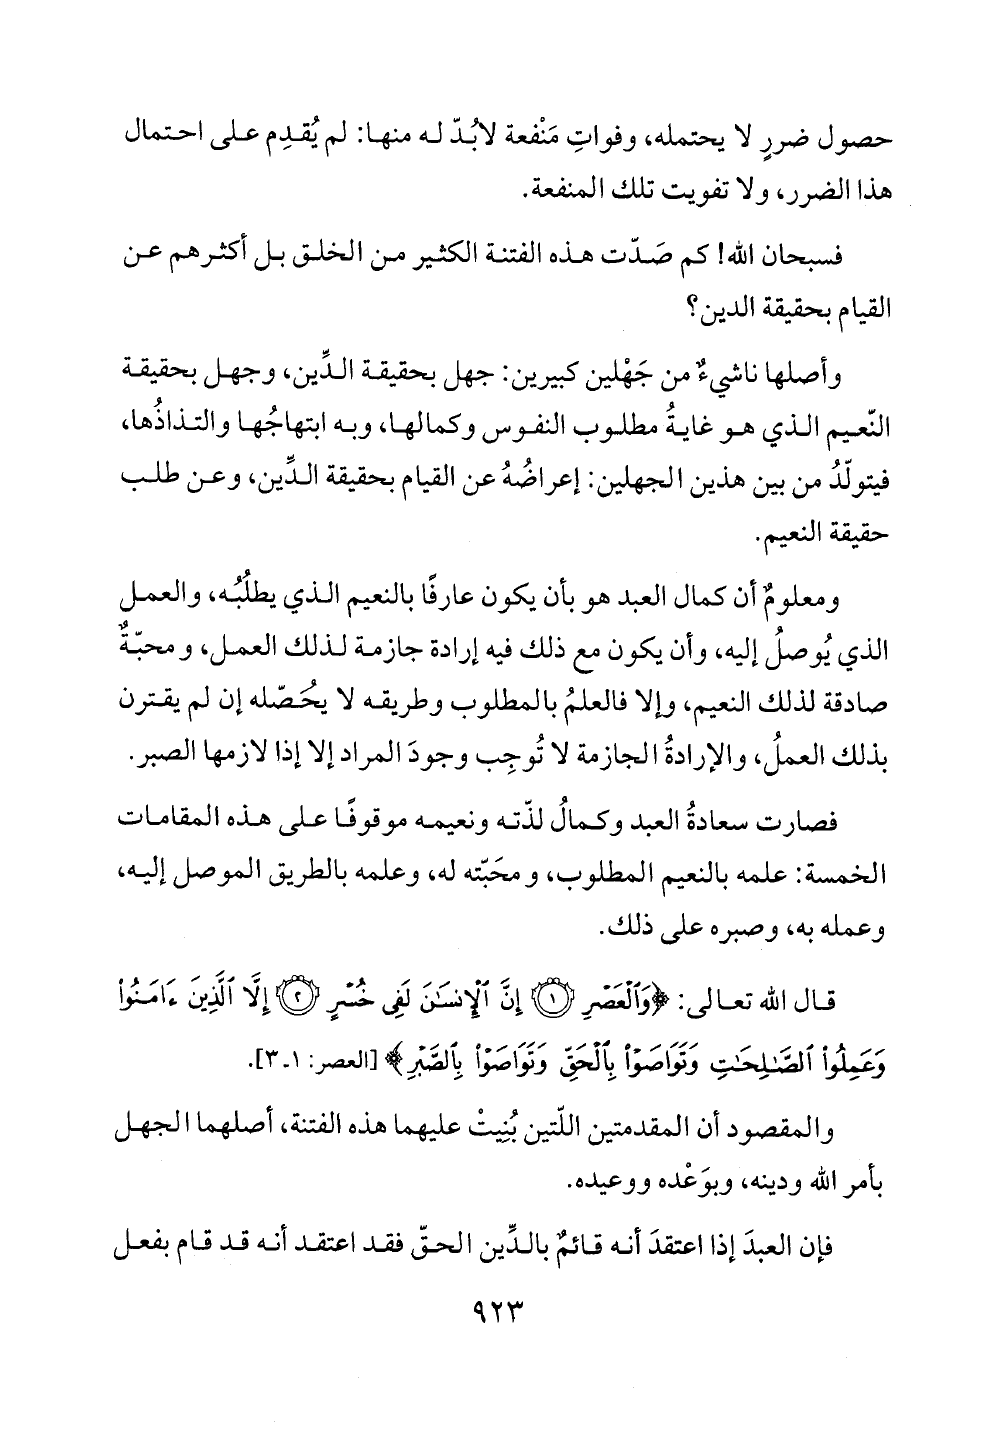 حصول ضررٍ لا يحتمله، وفواتِ مَنْفعة لابُدّ له منها: لم يُقدِم على احتمال
هذا الضرر، ولا تفويت تلك المنفعة.
فسبحان الله! كم صَدّت هذه الفتنة الكثير من الخلق بل أكثرهم عن
القيام بحقيقة الدين؟
وأصلها ناشيءٌ من جَهْلين كبيرين: جهل بحقيقة الدِّين، وجهل بحقيقة
النّعيم الذي هو غايةُ مطلوب النفوس وكمالها، وبه ابتهاجُها والتذاذُها،
فيتولّدُ من بين هذين الجهلين: إعراضُهُ عن القيام بحقيقة الدِّين، وعن طلب
حقيقة النعيم.
ومعلومٌ أن كمال العبد هو بأن يكون عارفًا بالنعيم الذي يطلُبُه، والعمل
الذي يُوصلُ إليه، وأن يكون مع ذلك فيه إرادة جازمة لذلك العمل، ومحبّةٌ
صادقة لذلك النعيم، وإلا فالعلمُ بالمطلوب وطريقه لا يُحَصّله إن لم يقترن
بذلك العملُ، والإرادةُ الجازمة لا تُوجِب وجودَ المراد إلا إذا لازمها الصبر.
فصارت سعادةُ العبد وكمالُ لذّته ونعيمه موقوفًا على هذه المقامات
الخمسة: علمه بالنعيم المطلوب، ومحَبّته له، وعلمه بالطريق الموصل إليه،
وعمله به، وصبره على ذلك.
قال الله تعالى: ﴿وَٱلْعَصْرِ ۝١ إِنَّ ٱلْإِنسَٰنَ لَفِى خُسْرٍ ۝٢ إِلَّا ٱلَّذِينَ ءَامَنُوا۟
وَعَمِلُوا۟ ٱلصَّٰلِحَٰتِ وَتَوَاصَوْا۟ بِٱلْحَقِّ وَتَوَاصَوْا۟ بِٱلصَّبْرِ﴾ [العصر: ١ـ٣].
والمقصود أن المقدمتين اللّتين بُنِيتْ عليهما هذه الفتنة، أصلهما الجهل
بأمر الله ودينه، وبوَعْده ووعيده.
فإن العبدَ إذا اعتقدَ أنه قائمٌ بالدِّين الحقّ فقد اعتقد أنه قد قام بفعل
٩٢٣